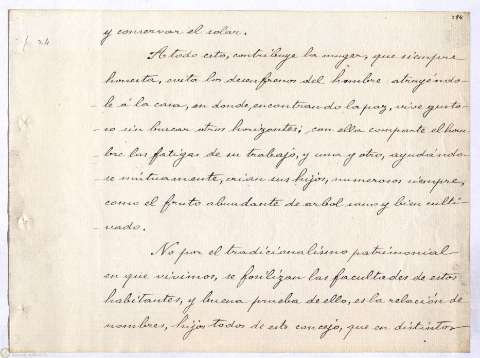 184
y conservar el solar.
A todo esto, contribuye la muger, que siempre
honesta, evita los desenfrenos del hombre atrayéndo-
le á la casa, en donde, encontrando la paz, vive gusto-
so sin buscar otros horizontes; con ella comparte el hom-
bre las fatigas de su trabajo, y una y otro, ayudándo-
se mútuamente, crian sus hijos, numerosos siempre,
como el fruto abundante de arbol sano y bien culti-
vado.
No por el tradicionalismo patrimonial
en que vivimos, se fosilizan las facultades de estos
habitantes, y buena prueba de ello, es la relación de
nombres, hijos todos de este concejo, que en distintos